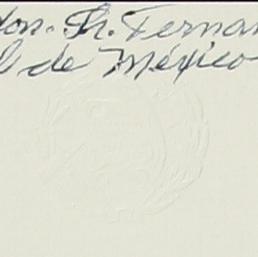 Hon. Th. Fernan
l de México